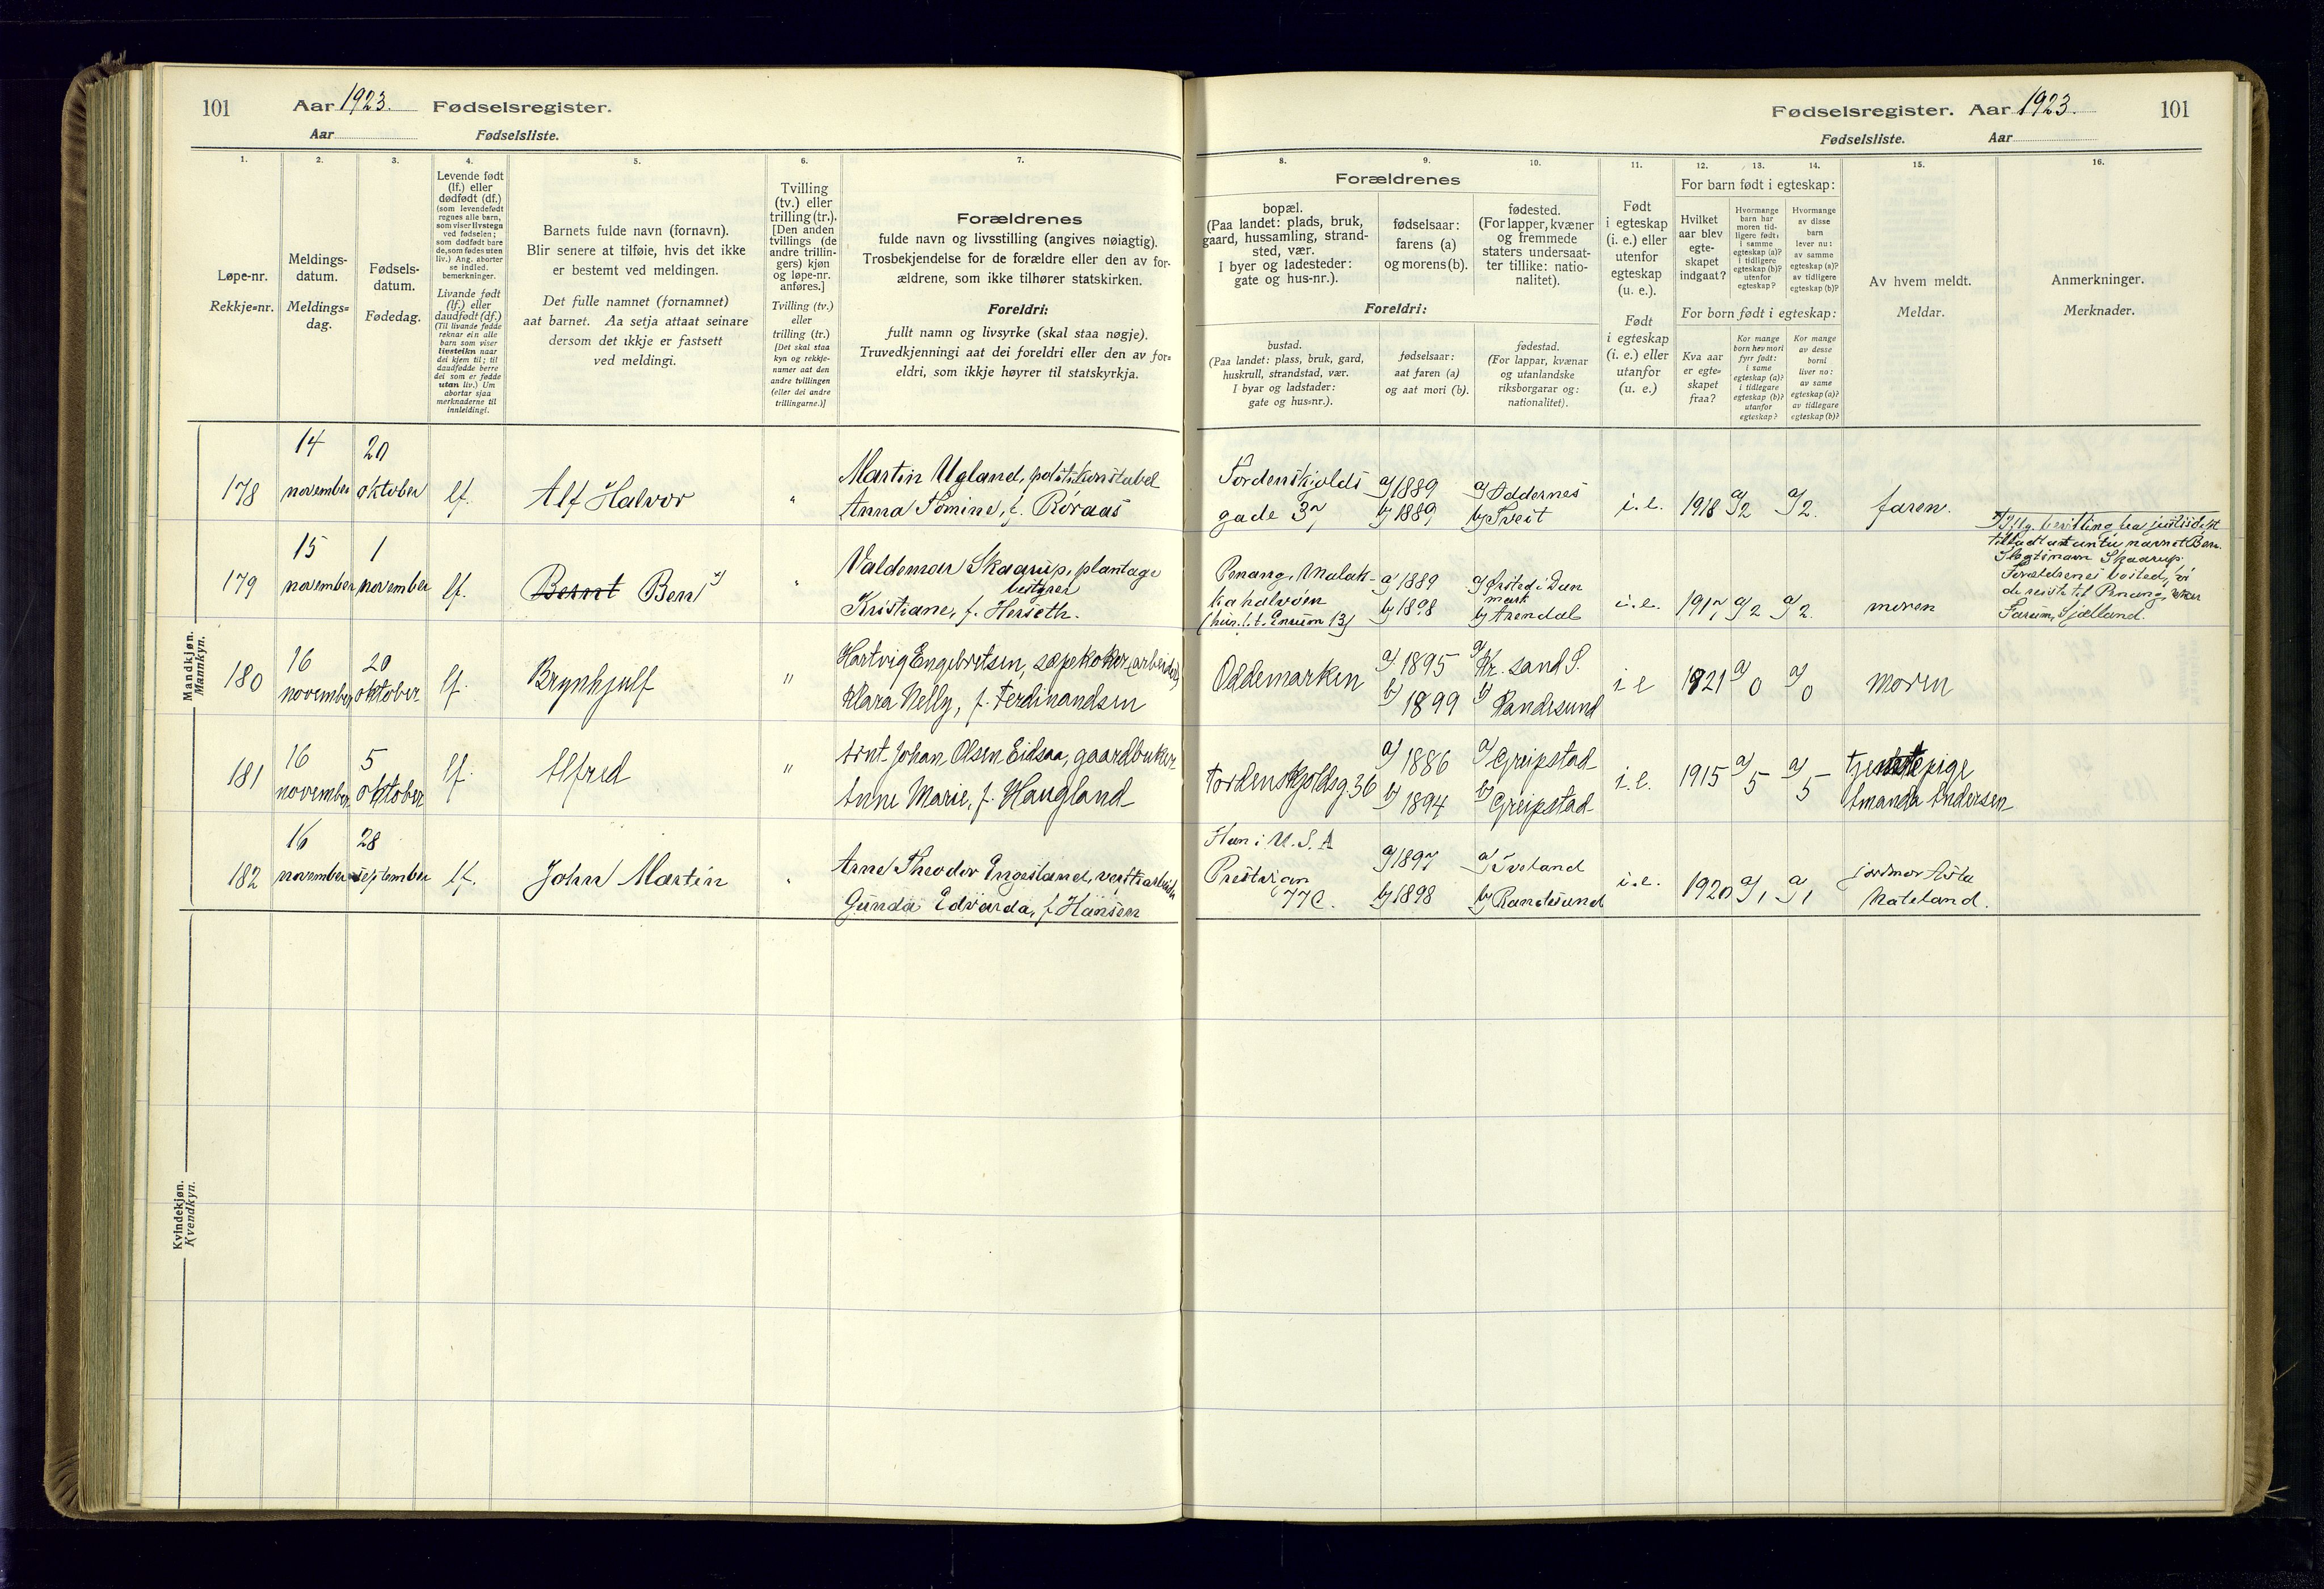 101 Aar 1923. Fødselsregister.
Aar Fødselsliste.
1. 2. 3. 4. 5. 6. 7.
Løpe-nr.
Rekkje=nr.
Meldings-
datum.
Meldings=
dag.
Fødsels-
datum.
Fødedag.
Levende født
(lf.) eller
dødfødt (df.)
(som levendefødt
regnes alle barn,
som viser livstegn
ved fødselen;
som dødfødt bare
de, som fødes uten
liv.) Ang. aborter
se indled.
bemerkninger.
Livande født
(lf.) eller
daudfødt (df.)
(Til livande fødde
reknar ein alle
born som viser
livsteikn naar
dei kjem til; til
daudfødde berre
dei som er fødde
utan liv.) Um
abortar sjaa
merknaderne til
innleidingi.
Barnets fulde navn (fornavn).
Blir senere at tilføie, hvis det ikke
er bestemt ved meldingen.
Det fulle namnet (fornamnet)
aat barnet. Aa setja attaat seinare
dersom det ikkje er fastsett
ved meldingi.
Tvilling
(tv.) eller
trilling (tr.).
[Den anden
tvillings (de
andre trillin-
gers) kjøn
og løpe-nr.
anføres.]
Tvilling (tv.)
eller
trilling (tr.)
[Det skal staa
kyn og rekkje-
numer aat den
andre tvillingen
(eller dei andre
trillingarne.)]
Forældrenes
fulde navn og livsstilling (angives nøiagtig).
Trosbekjendelse for de forældre eller den av for-
ældrene, som ikke tilhører statskirken.
Foreldri:
fullt namn og livsyrke (skal staa nøgje).
Truvedkjenningi aat dei foreldri eller den av for=
eldri, som ikkje høyrer til statskyrkja.
Mandkjøn.
Mankyn.
178
14
november
20
oktober
lf.
Alf Halvor
"
Martin Ugland, politikonstabel
Anna Tomine, f. Røraas
179
15
november
1
november
lf.
Bernt Ben
"
Valdemar Skaarup, plantage
bestyrer
Kristiane, f. Herseth.
180
16
november
20
oktober
lf.
Brynhjulf
"
Hartvig Engebretsen, sæpekoker (arbeider)
Klara Nelly, f. Ferdinandsen
181
16
november
5
oktober
lf.
Alfred
"
Arnt Johan Olsen Eidsaa, gaardbruker
Anne Marie, f. Haugland
182
16
november
28
september
lf.
John Martin
"
Arne Theodor Engesland,
Gunda Edvarda, f Hansen
Kvindekjøn.
Kvendkyn.
Fødselsregister. Aar 1923. 101
Fødselsliste. Aar
8. 9. 10. 11. 12. 13. 14. 15. 16.
Forældrenes
bopæl.
(Paa landet: plads, bruk,
gaard, hussamling, strand-
sted, vær.
I byer og ladesteder:
gate og hus-nr.).
fødselsaar:
farens (a)
og morens (b).
fødested.
(For lapper, kvæner
og fremmede
staters undersaat-
ter tillike: natio-
nalitet).
Foreldri:
bustad.
(Paa landet: plass, bruk, gard,
huskrull, strandstad, vær.
I byar og ladstader:
gate og hus=nr.).
fødselsaar:
aat faren (a)
og aat mori (b).
fødestad.
(For lappar, kvænar
og utanlandske
riksborgarar og:
nationalitet).
Født
i egteskap
(i. e.) eller
utenfor
egteskap
(u. e.).
Født
i egteskap
(i. e.) eller
utanfor
(u. e.)
For barn født i egteskap:
Hvilket
aar blev
egte-
skapet
indgaat?
Hvormange
barn har
moren tid-
ligere født:
i samme
egteskap (a)?
i tidligere
egteskap (b)?
utenfor
egteskap?
Hvormange
av disse
barn
lever nu:
av samme
egteskap (a)?
av tidligere
egteskap (b)?
For born født i egteskap:
Kva aar
er egte=
skapet
fraa?
Kor mange
born hev mori
fyrr født:
i same
egteskap (a)?
i tidlegare
egteskap (b)?
utanfor
egteskap?
Kor mange
av desse
borni
liver no:
av same
egteskap (a)?
av tidlegare
egteskap (b)?
Av hvem meldt.
Meldar.
Anmerkninger.
Merknader.
Tordenskjolds
gade 37
a) 1889
b) 1889
a) Oddernes
b) Tveit
i.e.
1918
a) 2
a) 2.
faren.
Penang, Malak-
kahalvøen
a) 1889
b) 1898
a) Ørsted i Dan
mark
b) Arendal
i.e.
1917
a) 2
a) 2.
moren
tilladt at anta navnet Ben.
Slegtsnavn Skaarup.
Forældrenes bosted, før
de reiste til Penang, var
Farum, Sjælland.
Oddemarken
a) 1895
b) 1899
a) Kr. sand S.
b) Randesund
i e
1921
a) 0
a) 0
moren
Tordenskjoldsg. 36
a) 1886
b) 1894
a) Greipstad
b) Greipstad
i.e.
1915
a) 5
a) 5
tjenestepige
Amanda Andersen
Han i U.S.A
Prestvien
77c.
a) 1897
b) 1898
a) Iveland
b) Randesund
i.e.
1920
a) 1
a) 1
jordmor Asta
Mateland.